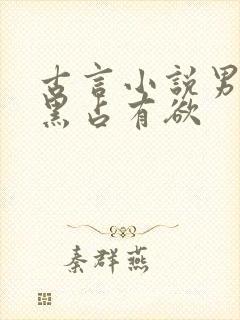 古言小説男
黑占有欲
秦群燕